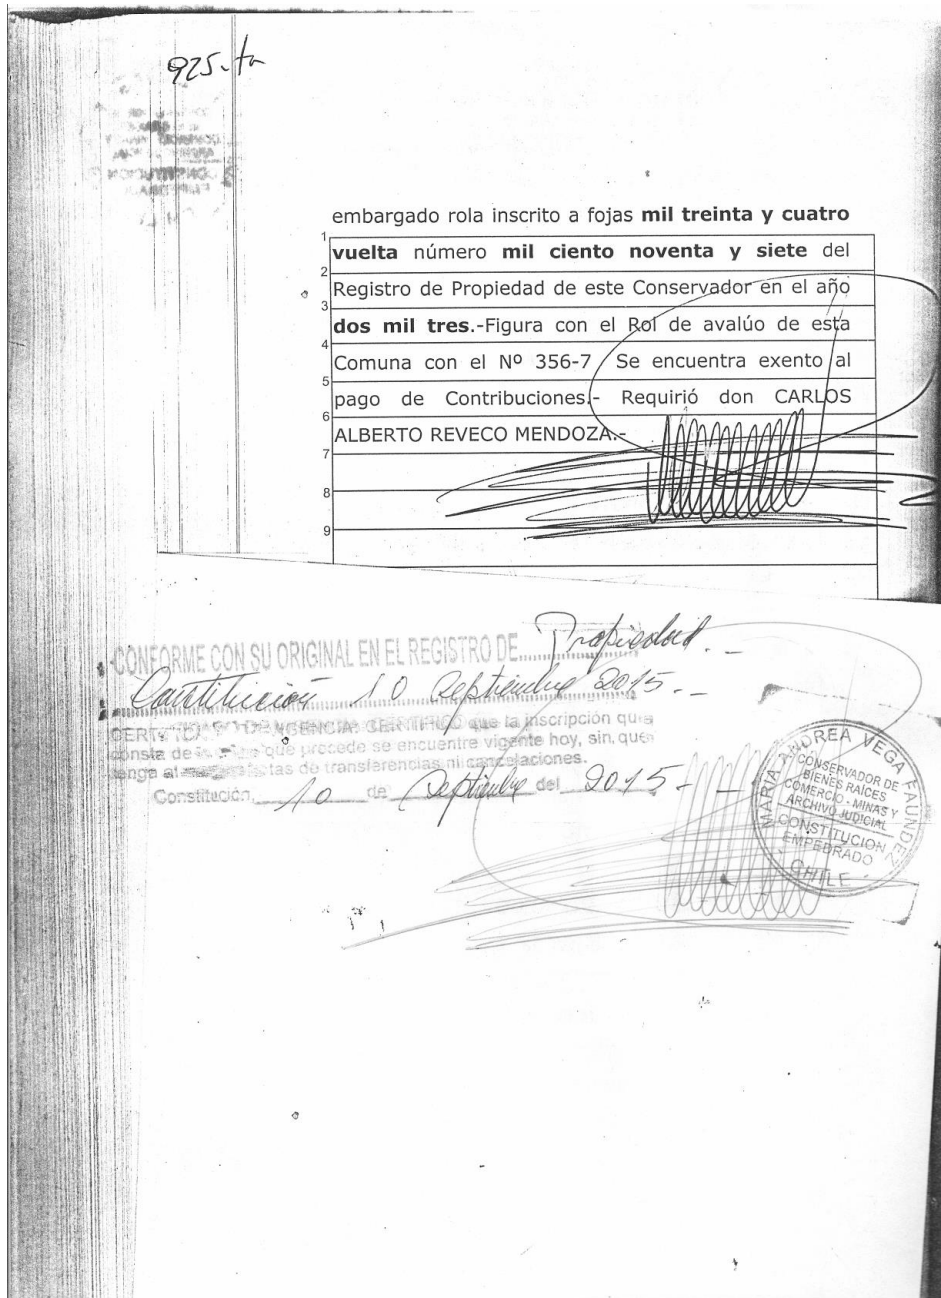 925.-
embargado rola inscrito a fojas mil treinta y cuatro
1
vuelta número mil ciento noventa y siete del
2
Registro de Propiedad de este Conservador en el año
3
dos mil tres.-Figura con el Rol de avalúo de esta
4
Comuna con el Nº 356-7 Se encuentra exento al
5
pago de Contribuciones.- Requirió don CARLOS
6
ALBERTO REVECO MENDOZA.-
7
8
9
CONFORME CON SU ORIGINAL EN EL REGISTRO DE Propiedad.-
Constitución 10 Septiembre 2015.-
CERTIFICADO DE VIGENCIA: CERTIFICO que la inscripción que
consta de que precede se encuentre vigente hoy, sin que
tenga al notas de transferencias ni cancelaciones.
Constitución, 10 de Septiembre del 2015.-
MARIA ANDREA VEGA FAUNDEZ
CONSERVADOR DE
BIENES RAÍCES
COMERCIO - MINAS Y
ARCHIVO JUDICIAL
CONSTITUCION
EMPEDRADO
CHILE